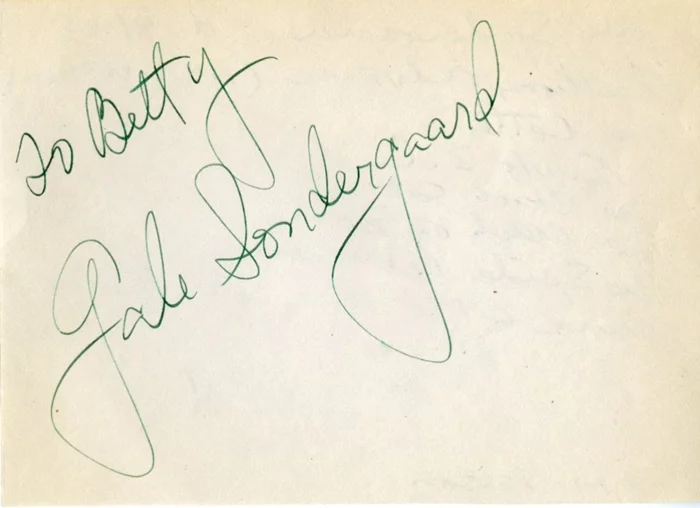 To Betty
Gale Sondergaard